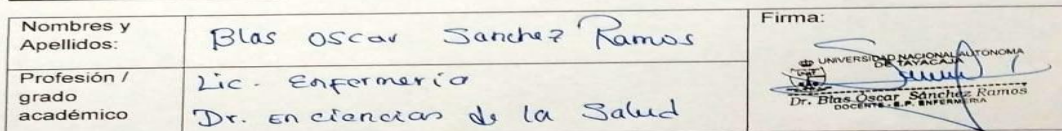 Nombres y Apellidos:
Blas Oscar Sanchez Ramos
Firma:
UNIVERSIDAD NACIONAL AUTONOMA
DE TAYACAJA
Dr. Blas Oscar Sánchez Ramos
DOCENTE - E.P. ENFERMERIA
Profesión / grado académico
Lic. Enfermeria
Dr. En ciencias de la Salud